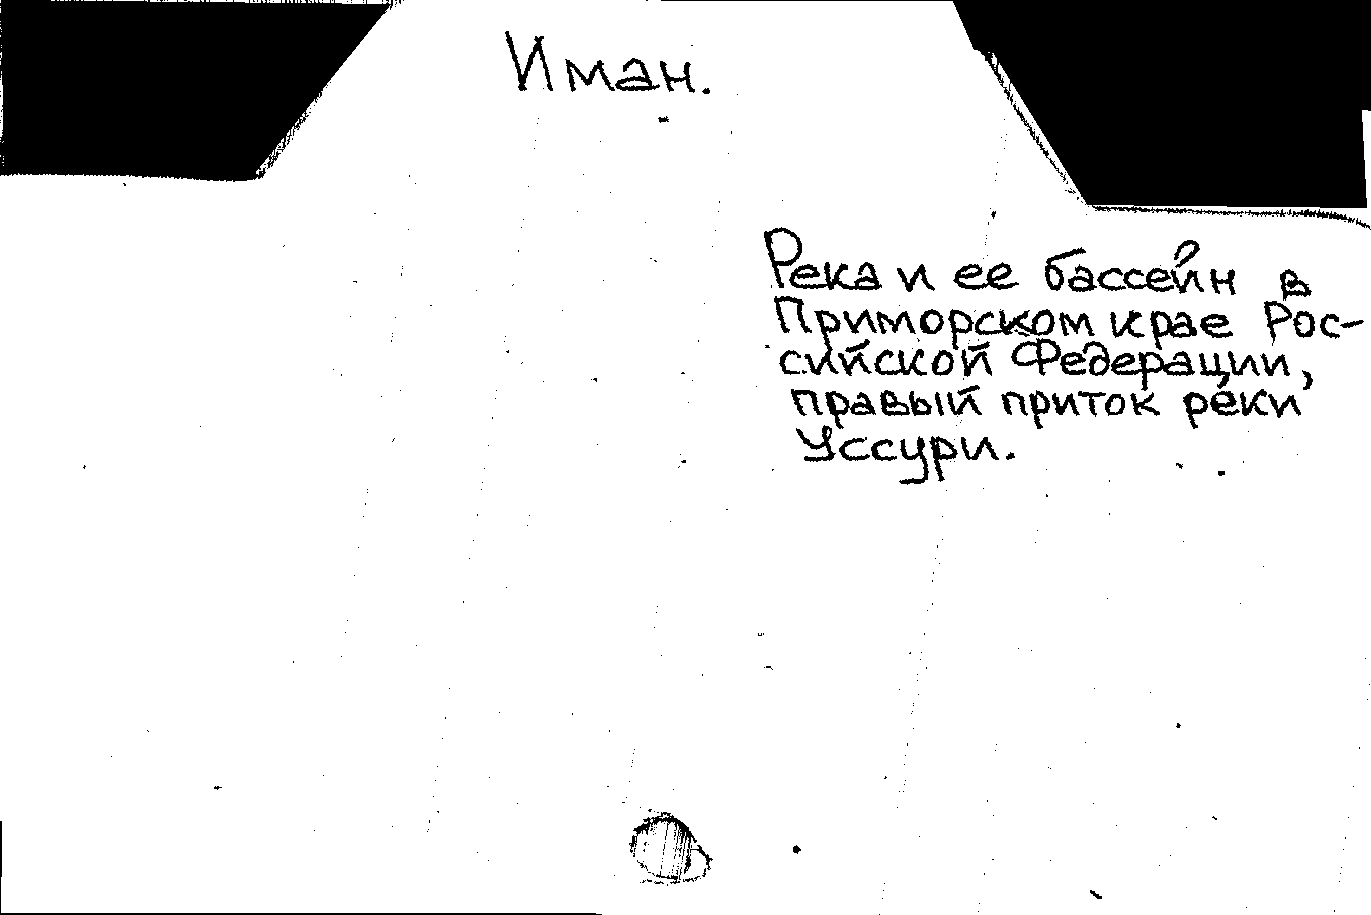 Иман.
Река и ее бассейн в
Приморском крае Рос-
сийской Федерации,
правый приток реки
Уссури.